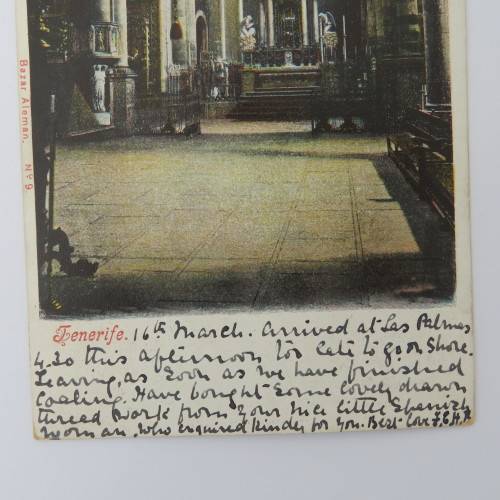 Bazar Alemán. Nº 9
Tenerife. 16th March. Arrived at Las Palmas
4.30 this afternoon too late to go on shore.
Leaving, as soon as we have finished
coaling. Have bought some lovely drawn
thread work from your nice little Spanish
woman, who enquired kindly for you. Best love